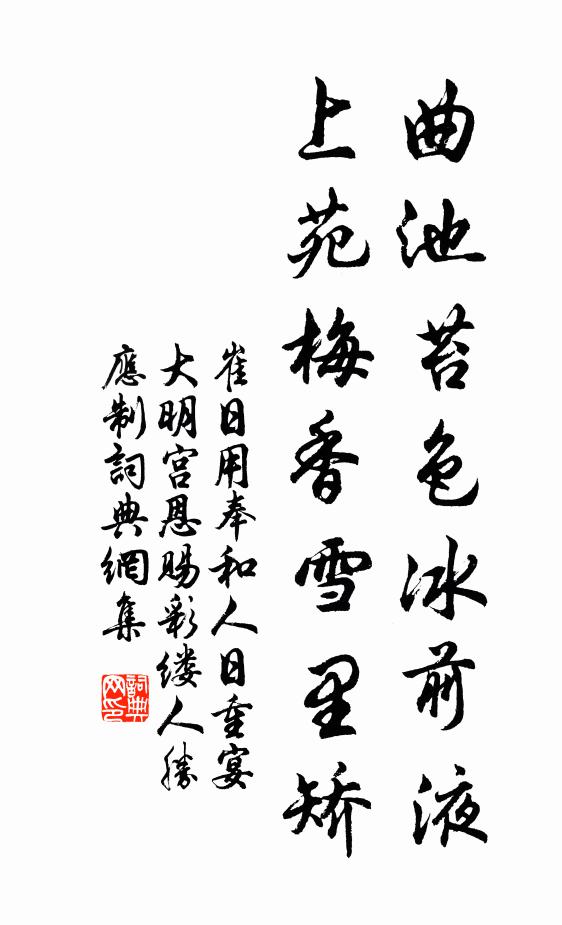 曲池苔色冰前液
上苑梅香雪里矫
崔日用奉和人日重宴
大明宫恩赐彩缕人勝
應制詞典網集
詞典網印